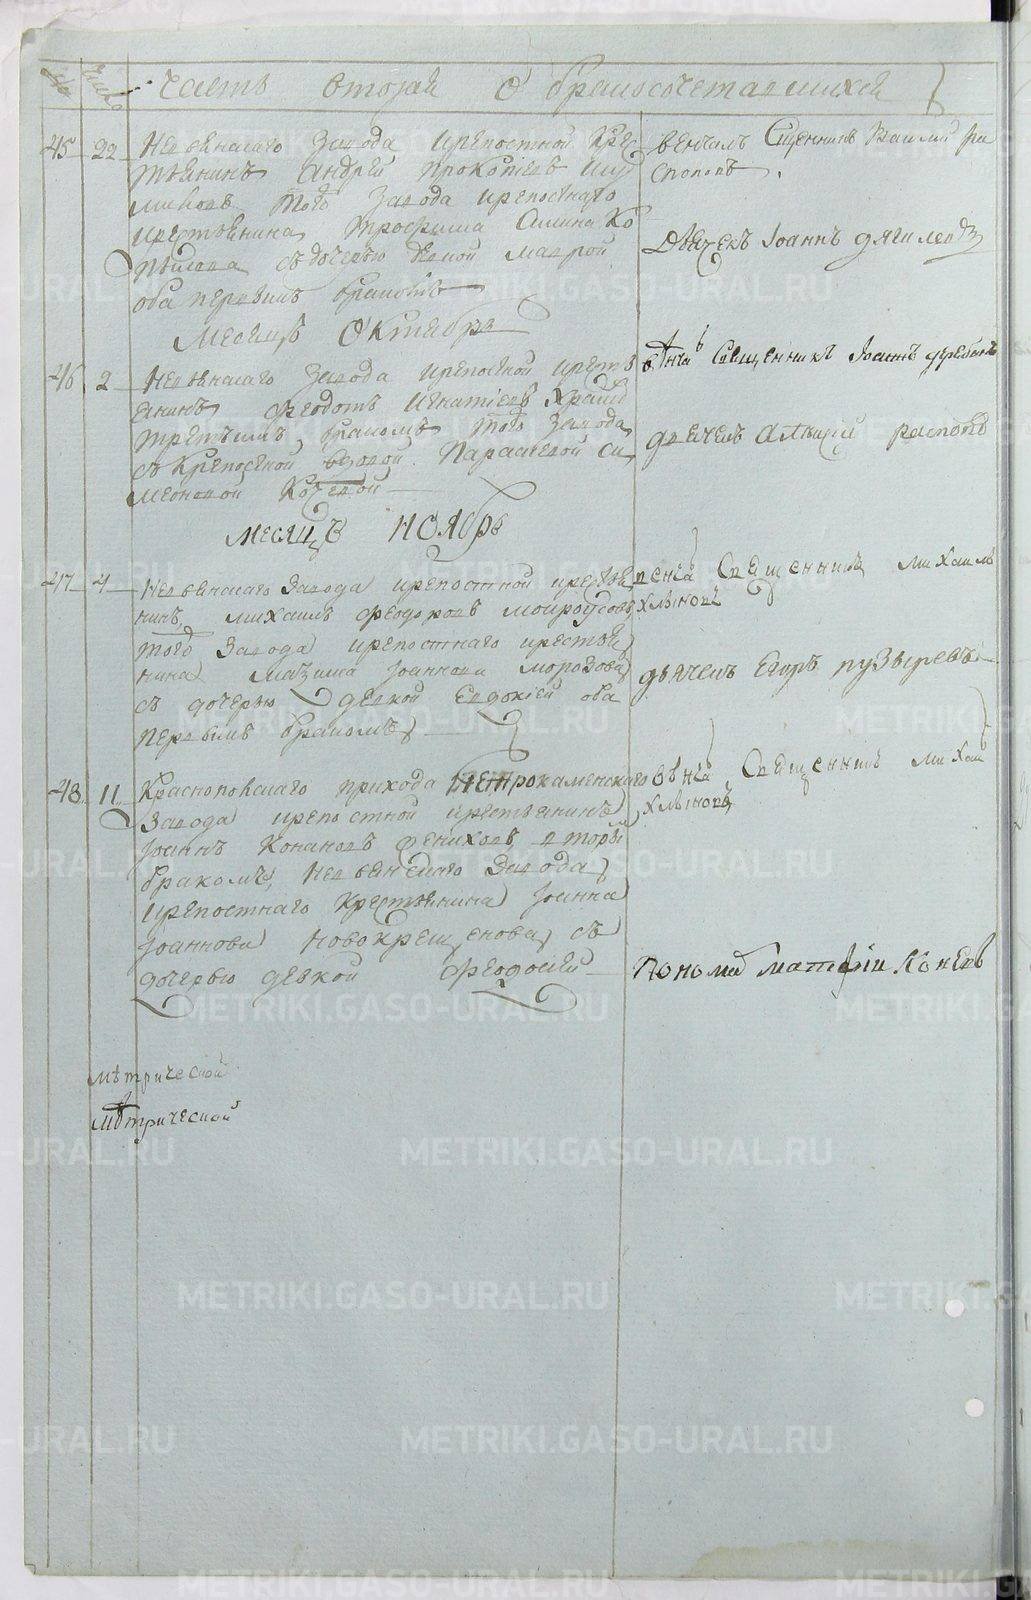 Часть вторая О бракосочетавшихся
45 22 Невьянскаго Завода крепостной кре
стьянинъ Андрей Прокопіевъ
того Завода крепостнаго
крестьянина Трофима
съ дочерью девкой Маврой
оба первымъ бракомъ
венчалъ Сщенникъ Василий Ра
споповъ.
Дьячекъ Іоаннъ Дягилевъ
Месяцъ Октябрь
46 2 Невьянскаго Завода крепосной кресть
янинъ Феодотъ Игнатіевъ
третьимъ бракомъ того Завода
съ крепосной вдовой Параскевой Си
меоновой
венчалъ Священникъ Іоаннъ
дьячекъ Алексій распоповъ
месяцъ НОЯбрь
47 4 Невьянскаго Завода крепостной крестья
нинъ михаилъ Феодоровъ мокроусовъ
того Завода крепостнаго крестья
нина Максима Іоаннова Морозова
съ дочерью девкой Евдокіей оба
первымъ бракомъ
венча Священникъ михаилъ
хлыновъ
дьячекъ Егоръ пузыревъ
48 11 Краснопольскаго прихода Петрокаменскаго
Завода крепостной крестьянинъ
Іоаннъ Конановъ Фениховъ вторы
бракомъ, Невьянскаго Завода
крепостнаго крестьянина Іоанна
Іоаннова Новокрещенова съ
дочерью девкой Феодосіей
вѣнча Священникъ михаи
хлыновъ
Пономарь матфіи Коневъ
мѣтрической
мѣтрической